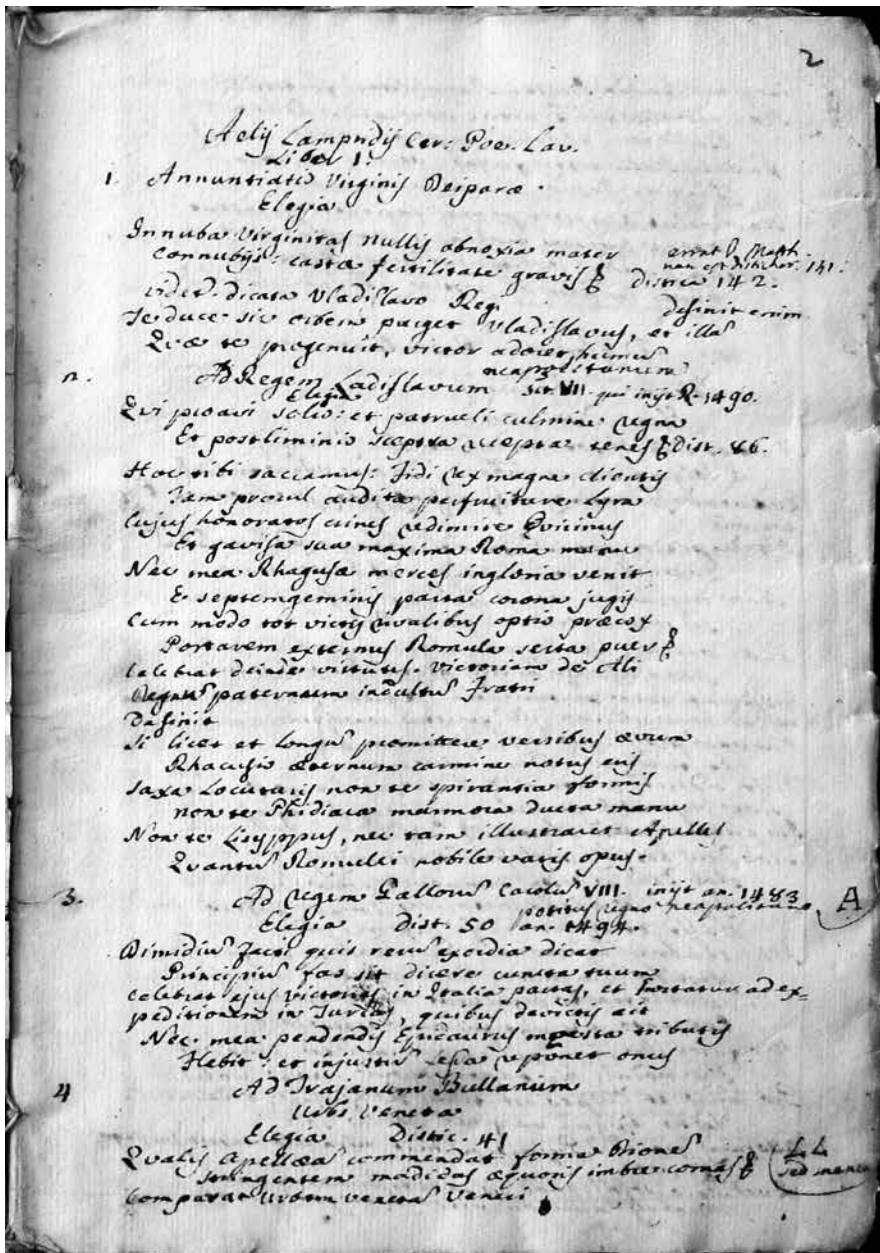 2
Aelij Lampridij Cer: Poe. Lau.
Liber 1:
1. Annuntiatio Virginis Deiparae.
Elegia
Innuba Virginitas nullis obnoxia mater errat D. Math.
Connubijs: casta fertilitate gravis & non est distichor. 141:
Distica 142.
videt. dicata Vladislavo Regi desinit enim
Te duce sic orbem purget Vladislavus, et illā
Quae te progenuit, victor adoret humum
2. Ad Regem Ladislavum neapolitanum
Elegia VII. qui inijt R. 1490.
Qui proavi solio: et patrueli culmine regna
Et postliminio sceptra recepta tenes & Dist. 86.
Hoc tibi sacramus: Fidi rex magne clientis
Iam procul audita perfruiture Lyra
Cujus honoratos crines redimire Quirinus
Et gavisa sua maxima Roma manu
Nec mea Rhagusae merces ingloria venit
E septemgeminis parta corona jugis
Cum modo tot victis rivalibus optio praecox
Portarem externus Romula serta puer &
Celebrat deinde virtutes. victoriam de Ali
Regnū paternum Fratri
Desinit
Si licet et longū promittere versibus aevum
Rhacusio aeternum carmine notus eris
Saxa Locuturis non te spirantia formis
non te Phidiaca marmora ducta manu
Non te Lisyppus, nec tam illustraret Apelles
Quantū Romulei nobile vatis opus.
3. Ad regem Gallorū Carolū VIII. inijt an. 1483
Elegia Dist. 50 potitus regno neapolitano
an. 1494. A
Dimidiū Facti quis rerū exordia dicat
Principiū fas sit dicere cuncta tuum
Celebrat ejus victorias in Italia partas, et hortatur ad ex=
peditionem in Turcas, quibus devictis ait
Nec mea pendendis Epidaurus moesta tributis
Flebit: et injustū reponet onus
4 Ad Trajanum Bullanum
Urbs Veneta
Elegia Distic. 41
Qualis Apellaea commendat forma Dionē
stringentem madidas aequoris imbre comas &
Comparat Urbem venetā veneri